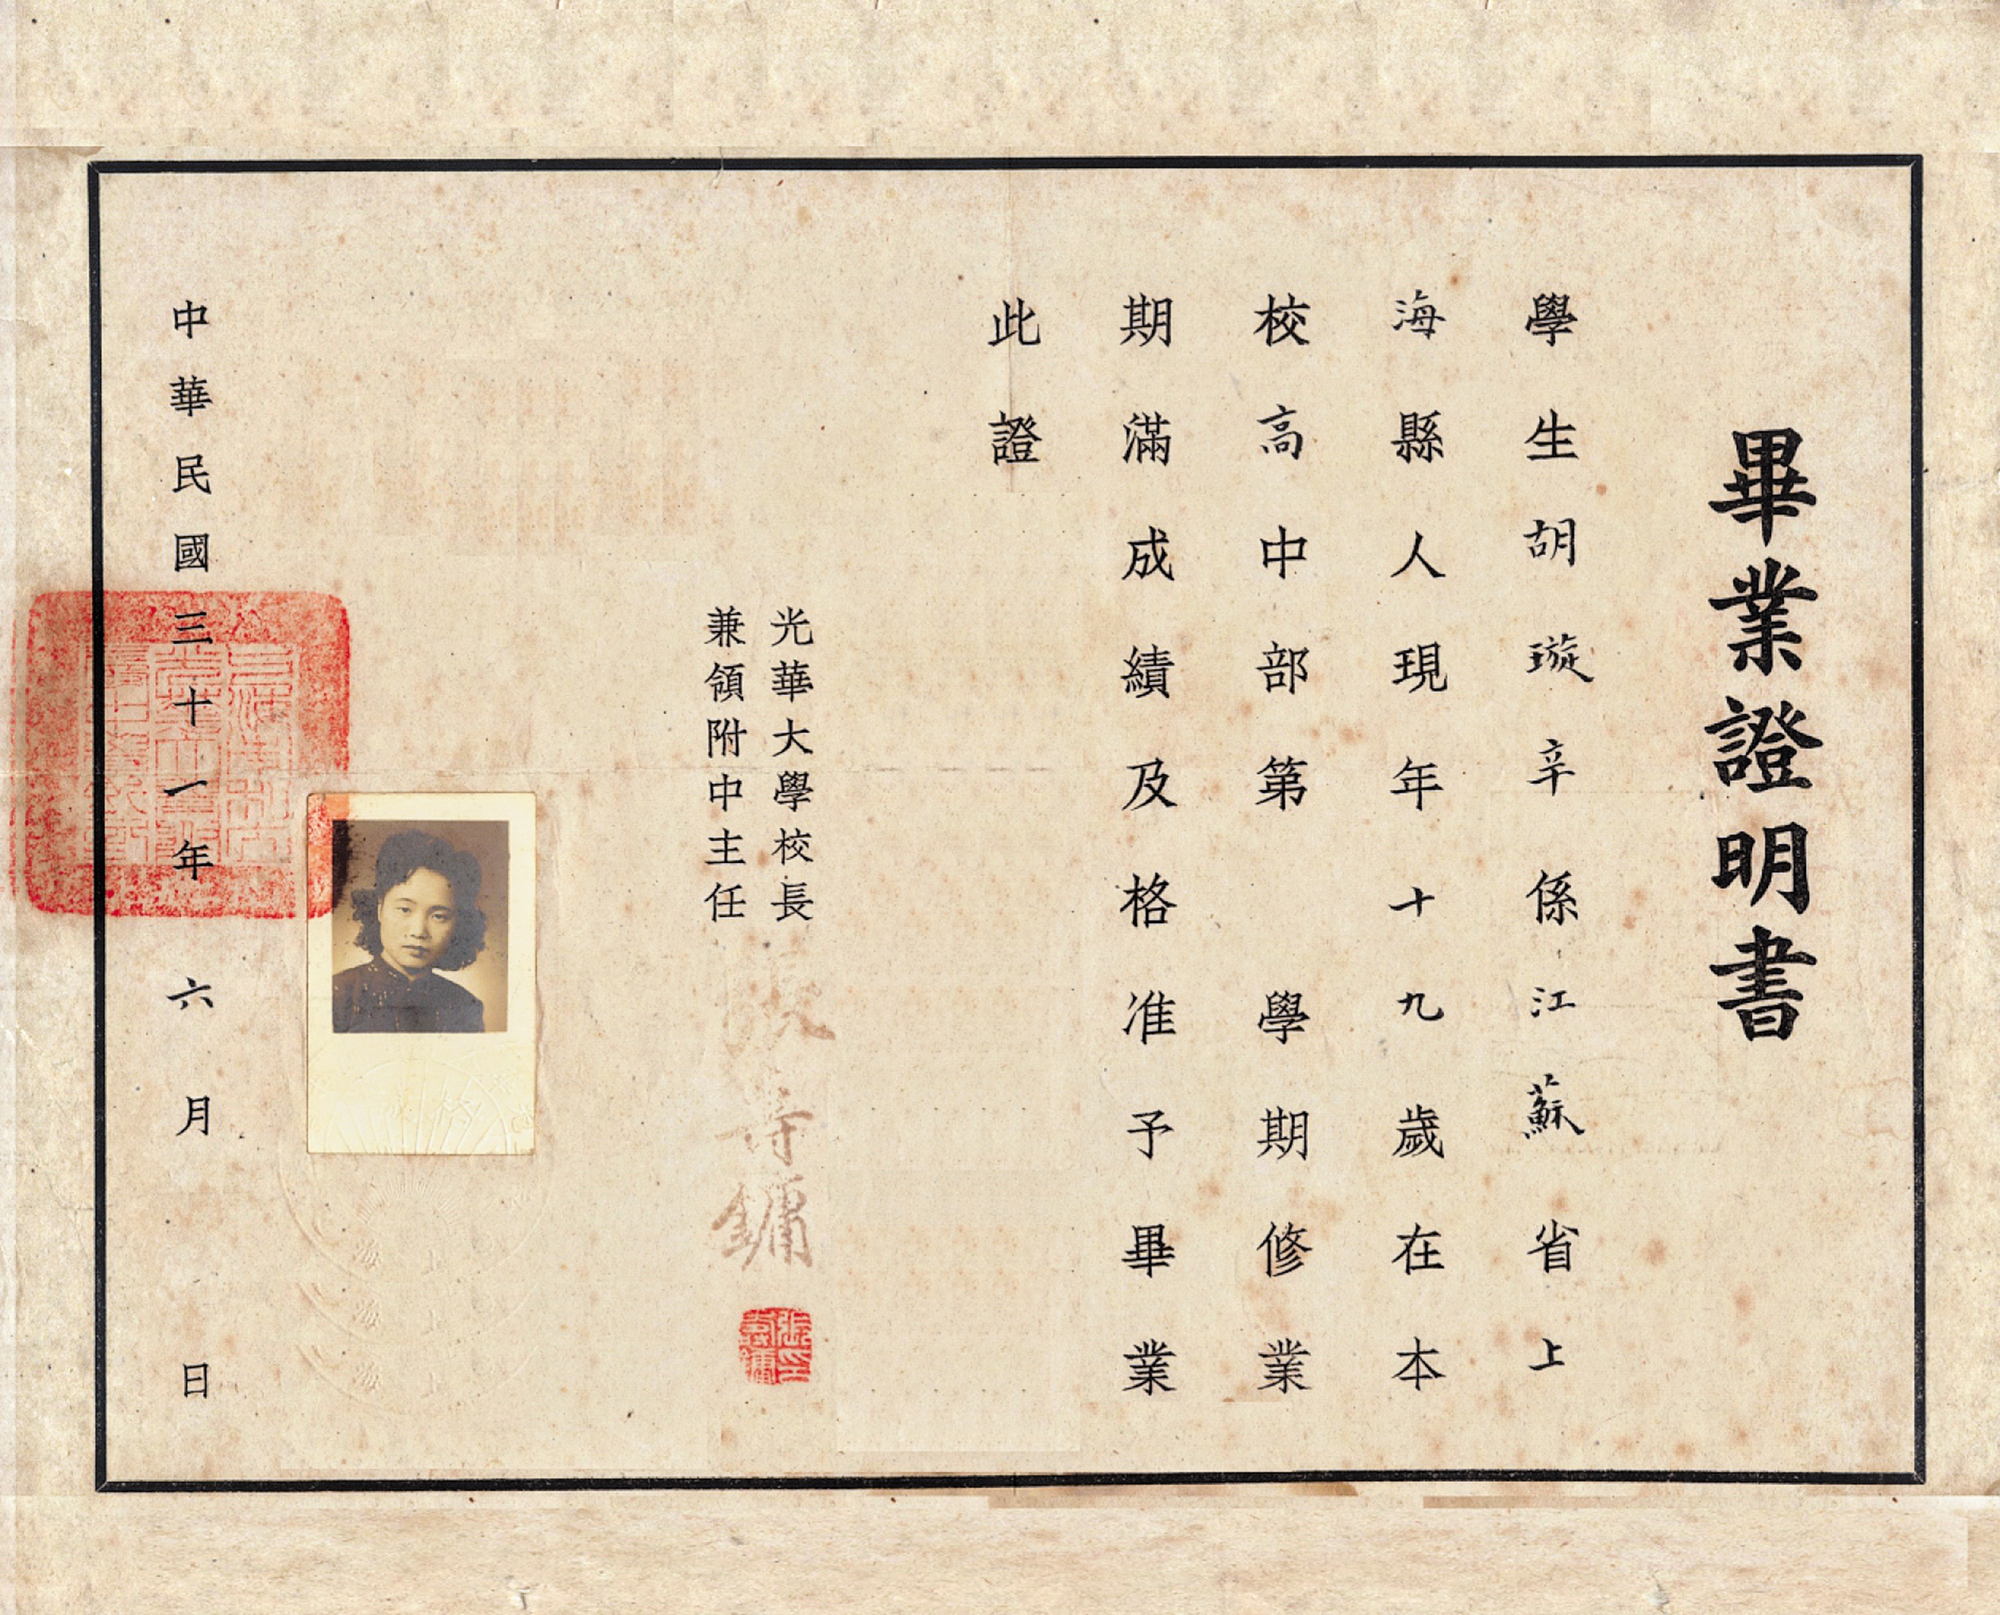 畢業證明書
學生胡璇辛係江蘇省上
海縣人現年十九歲在本
校高中部第 學期修業
期滿成績及格准予畢業
此證
光華大學校長
兼領附中主任
張壽鏞
中華民國三十一年六月 日